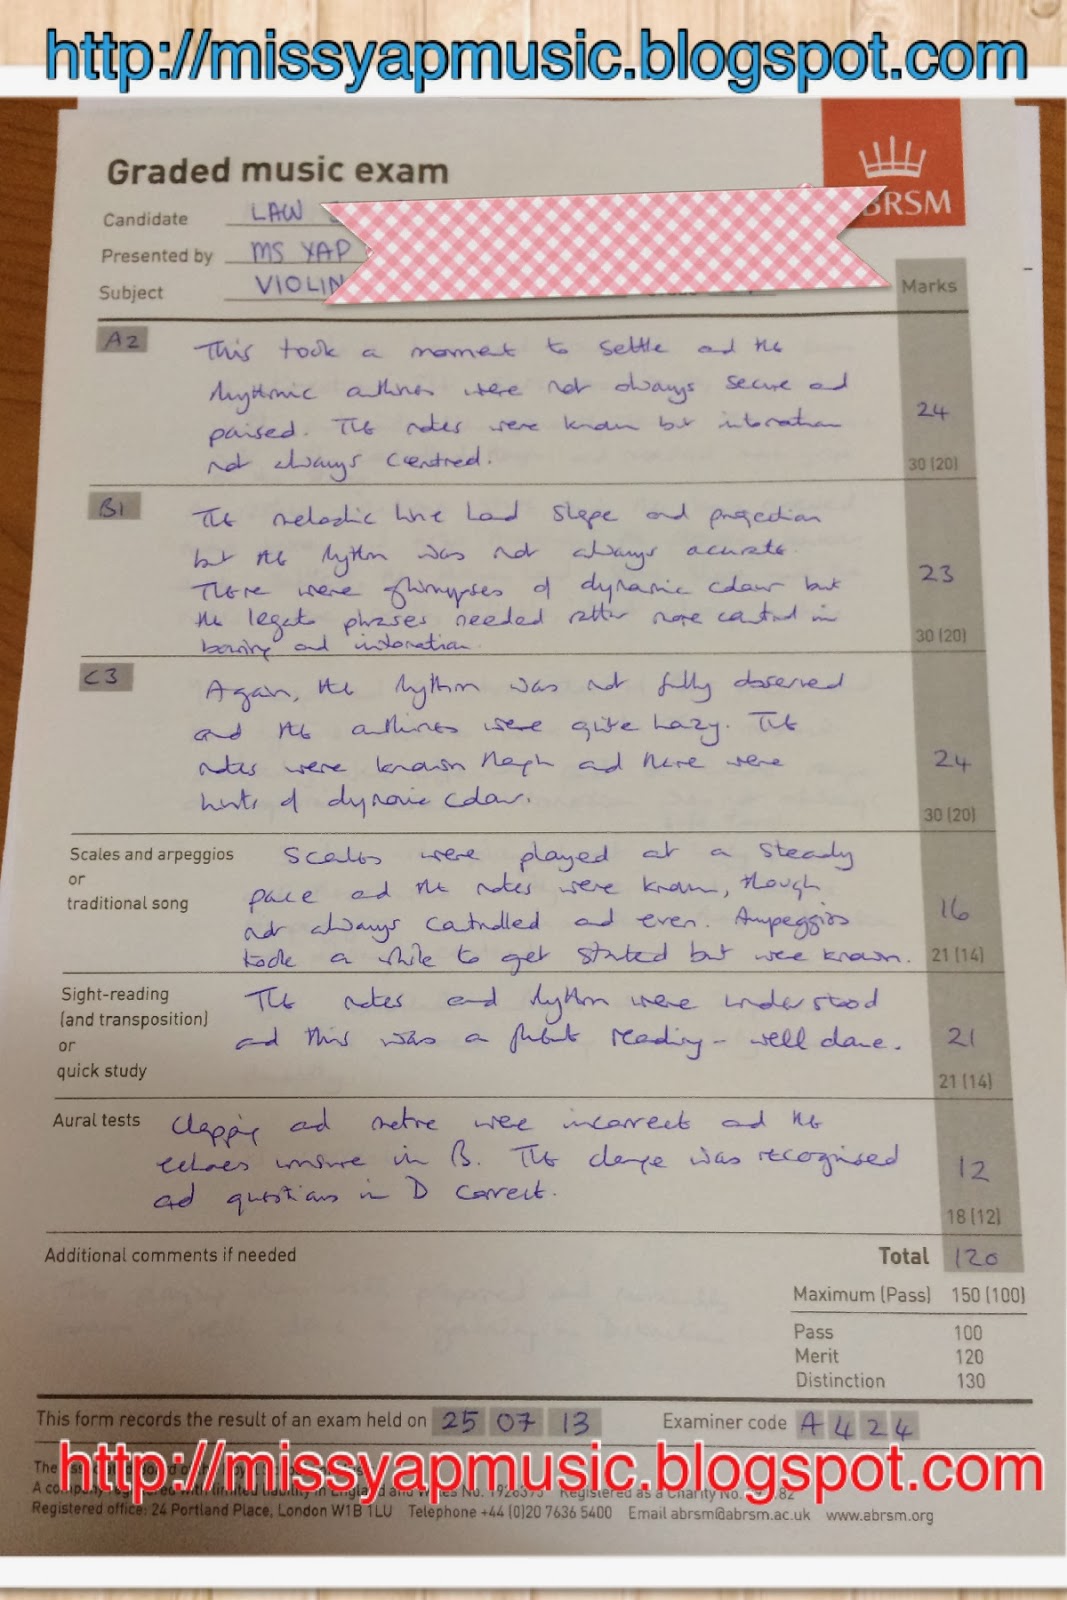 http://missyapmusic.blogspot.com
Graded music exam
ABRSM
Candidate LAW
Presented by MS YAP
Subject VIOLIN
Marks
A2
This took a moment to settle and the
rhythmic outlines were not always secure and
poised. The notes were known but intonation
not always centred.
24
30 (20)
B1
The melodic line had shape and projection
but the rhythm was not always accurate.
There were glimpses of dynamic colour but
the legato phrases needed rather more control in
bowing and intonation.
23
30 (20)
C3
Again, the rhythm was not fully observed
and the outlines were quite hazy. The
notes were known though and there were
hints of dynamic colour.
24
30 (20)
Scales and arpeggios
or
traditional song
Scales were played at a steady
pace and the notes were known, though
not always controlled and even. Arpeggios
took a while to get started but were known.
16
21 (14)
Sight-reading
(and transposition)
or
quick study
The notes and rhythm were understood
and this was a fluent reading - well done.
21
21 (14)
Aural tests
Clapping and metre were incorrect and the
echoes unsure in B. The change was recognised
and questions in D correct.
12
18 (12)
Additional comments if needed
Total 120
Maximum (Pass) 150 (100)
Pass 100
Merit 120
Distinction 130
This form records the result of an exam held on 25 07 13 Examiner code A 4 2 4
http://missyapmusic.blogspot.com
A company registered with limited liability in England and Wales No. 1926395 Registered as a Charity No.
Registered office: 24 Portland Place, London W1B 1LU Telephone +44 (0)20 7636 5400 Email abrsm@abrsm.ac.uk www.abrsm.org